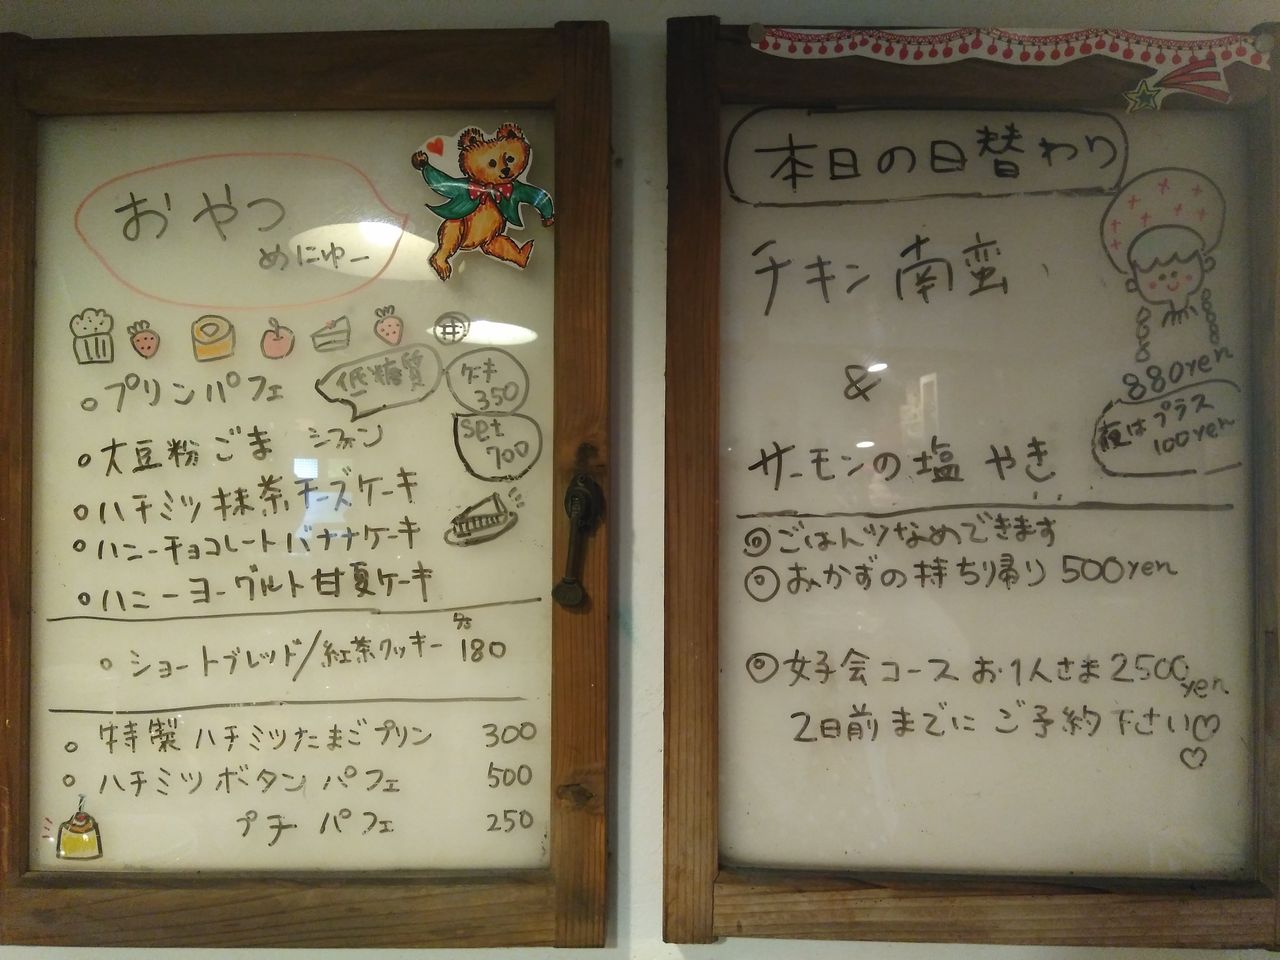 おやつ
めにゅー
低糖質
ケーキ
350
set
700
プリンパフェ
大豆粉ごま シフォン
ハチミツ抹茶チーズケーキ
ハニーチョコレートバナナケーキ
ハニーヨーグルト甘夏ケーキ
ショートブレッド/紅茶クッキー 180
特製ハチミツたまごプリン 300
ハチミツボタンパフェ 500
プチパフェ 250
本日の日替わり
チキン南蛮
&
サーモンの塩やき
880yen
夜はプラス
100yen
◎ごはんツなめできます
◎おかずの持ち帰り 500yen
◎女子会コース お1人さま2500yen
2日前までにご予約下さい♡
♡